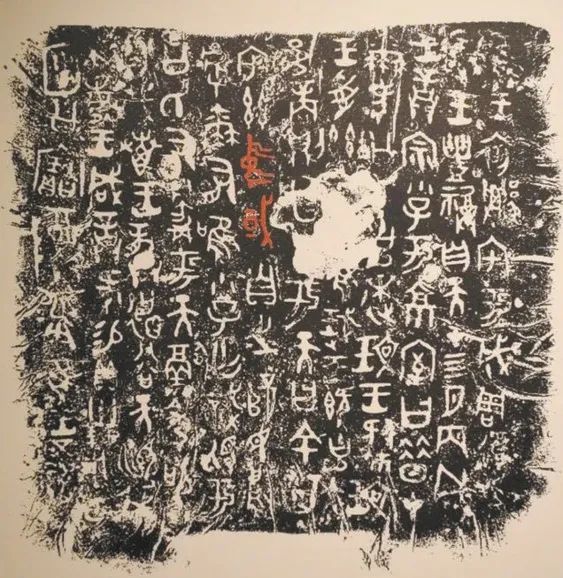 唯王初遷宅于成周復稟
珷王豐福自天在四月丙戌
王誥宗小子于京室曰昔在
爾考公氏克逨玟王肆玟
王受茲唯珷王既克大
邑商則廷告于天曰余其
宅茲中或自之乂民烏
虖爾有唯小子亡識視于
公氏有爵于天徹命敬
享哉唯王恭德裕天訓我
不敏王咸誥何賜貝卅朋用作
庾公寶尊彝唯王五祀